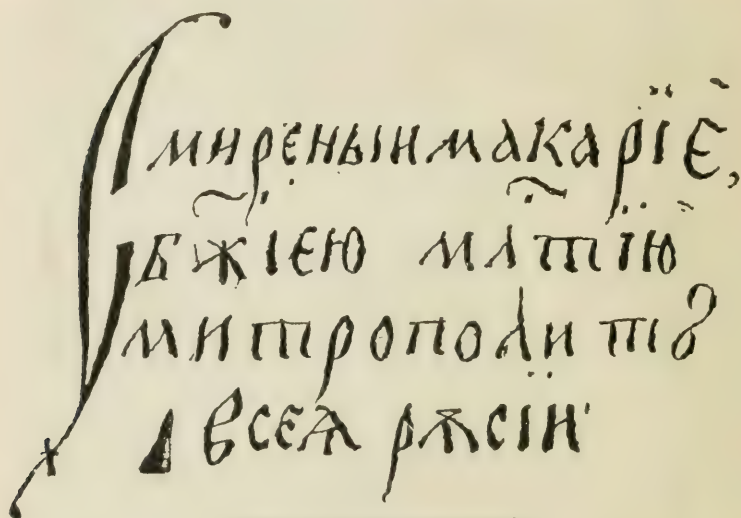 Смирєныи макарїє,
бж҃їєю мл҃тїю
митрополитꙋ
всеѧ рѫсїи